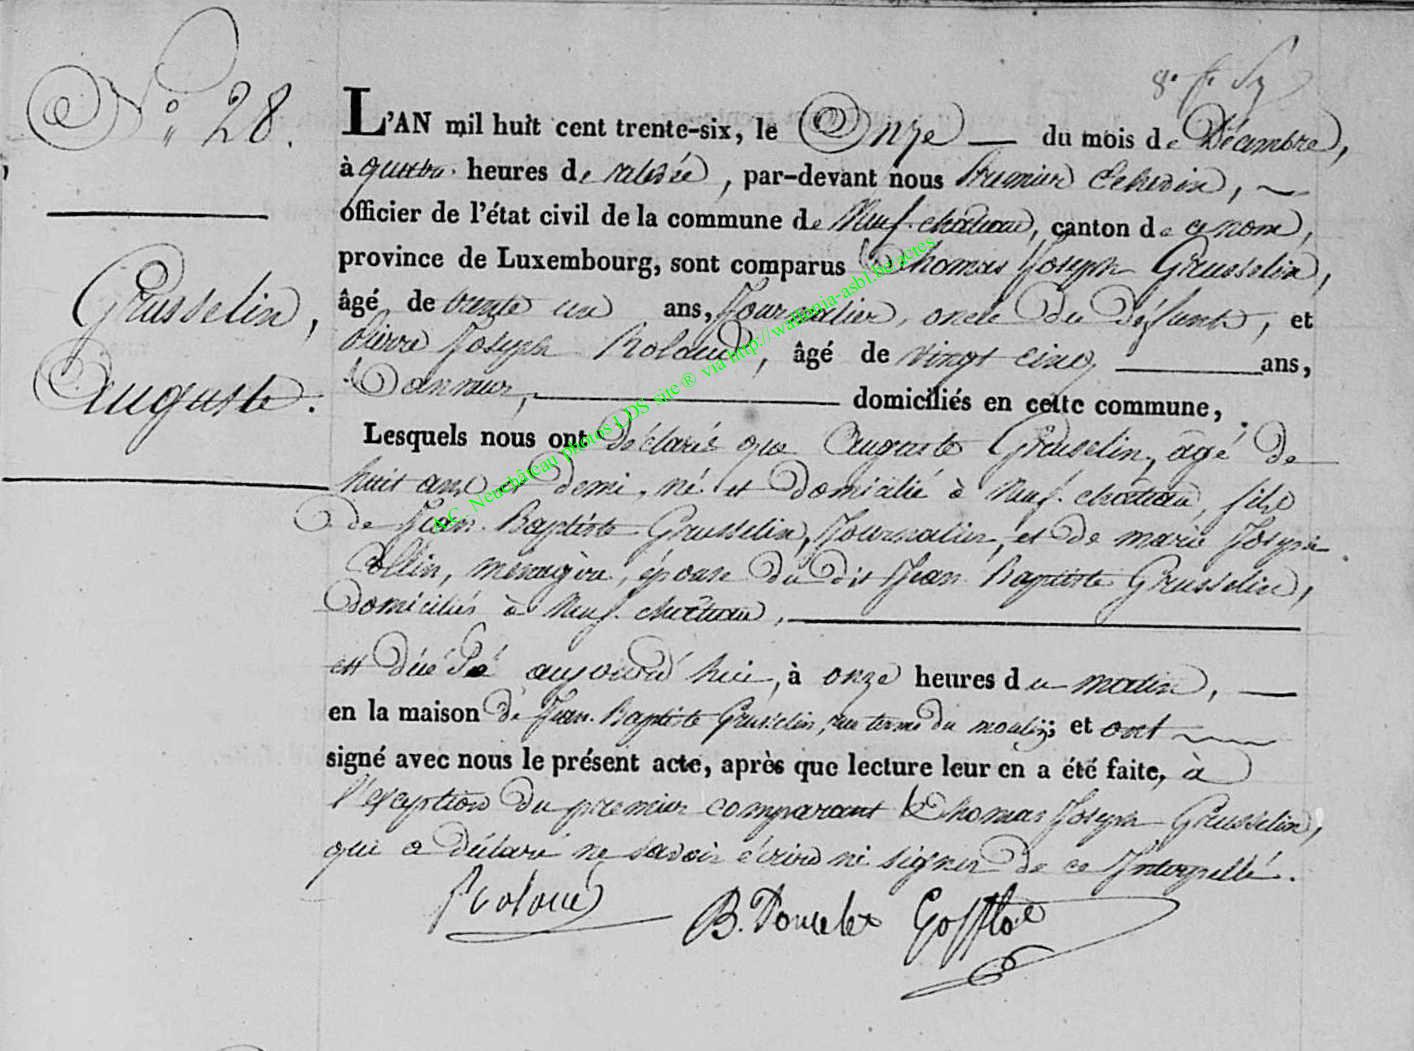 N.° 28.
L'AN mil huit cent trente-six, le Onze du mois de Décembre,
à quatre heures de relevée, par-devant nous Premier Echevin,
officier de l'état civil de la commune de Neuf-château, canton de ce nom,
province de Luxembourg, sont comparus Thomas Joseph Grusselin,
Grusselin,
âgé de trente un ans, Journalier, oncle du défunt, et
Pierre Joseph Roland, âgé de vingt cinq ans,
Auguste.
Tanneur, domiciliés en cette commune,
Lesquels nous ont déclaré que Auguste Grusselin, âgé de
huit ans et demi, né et domicilié à Neuf-château, fils
de Jean-Baptiste Grusselin, Journalier, et de marie Joseph
Collin, menagère, épouse du dit Jean Baptiste Grusselin,
domiciliés à Neuf-château,
est décédé aujourd'hui, à onze heures du matin,
en la maison de Jean-Baptiste Grusselin, du moulin; et ont
signé avec nous le présent acte, après que lecture leur en a été faite, à
l'exception du premier comparant Thomas Joseph Grusselin,
qui a déclaré ne savoir écrire ni signer de ce Interpellé.
Roland B. Goffloт
A.C. Neuchâteau photos LDS site ® via http://wallonia-asbl.be/actes